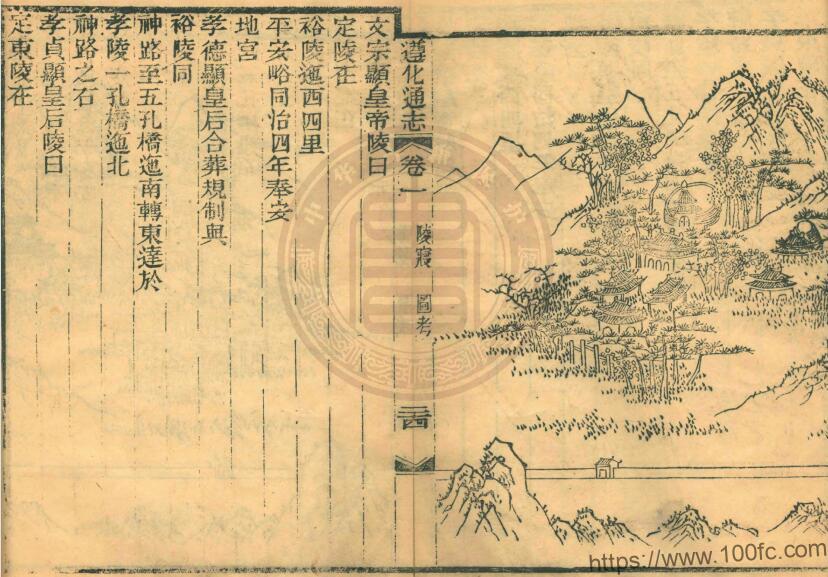 遵化通志 卷一 陵寢 圖考
文宗顯皇帝陵曰
定陵在
裕陵迤西四里
平安峪同治四年奉安
地宮
孝德顯皇后合葬規制與
裕陵同
神路至五孔橋迤南轉東達於
孝陵一孔橋迤北
神路之右
孝貞顯皇后陵曰
定東陵在
https://www.100fc.com